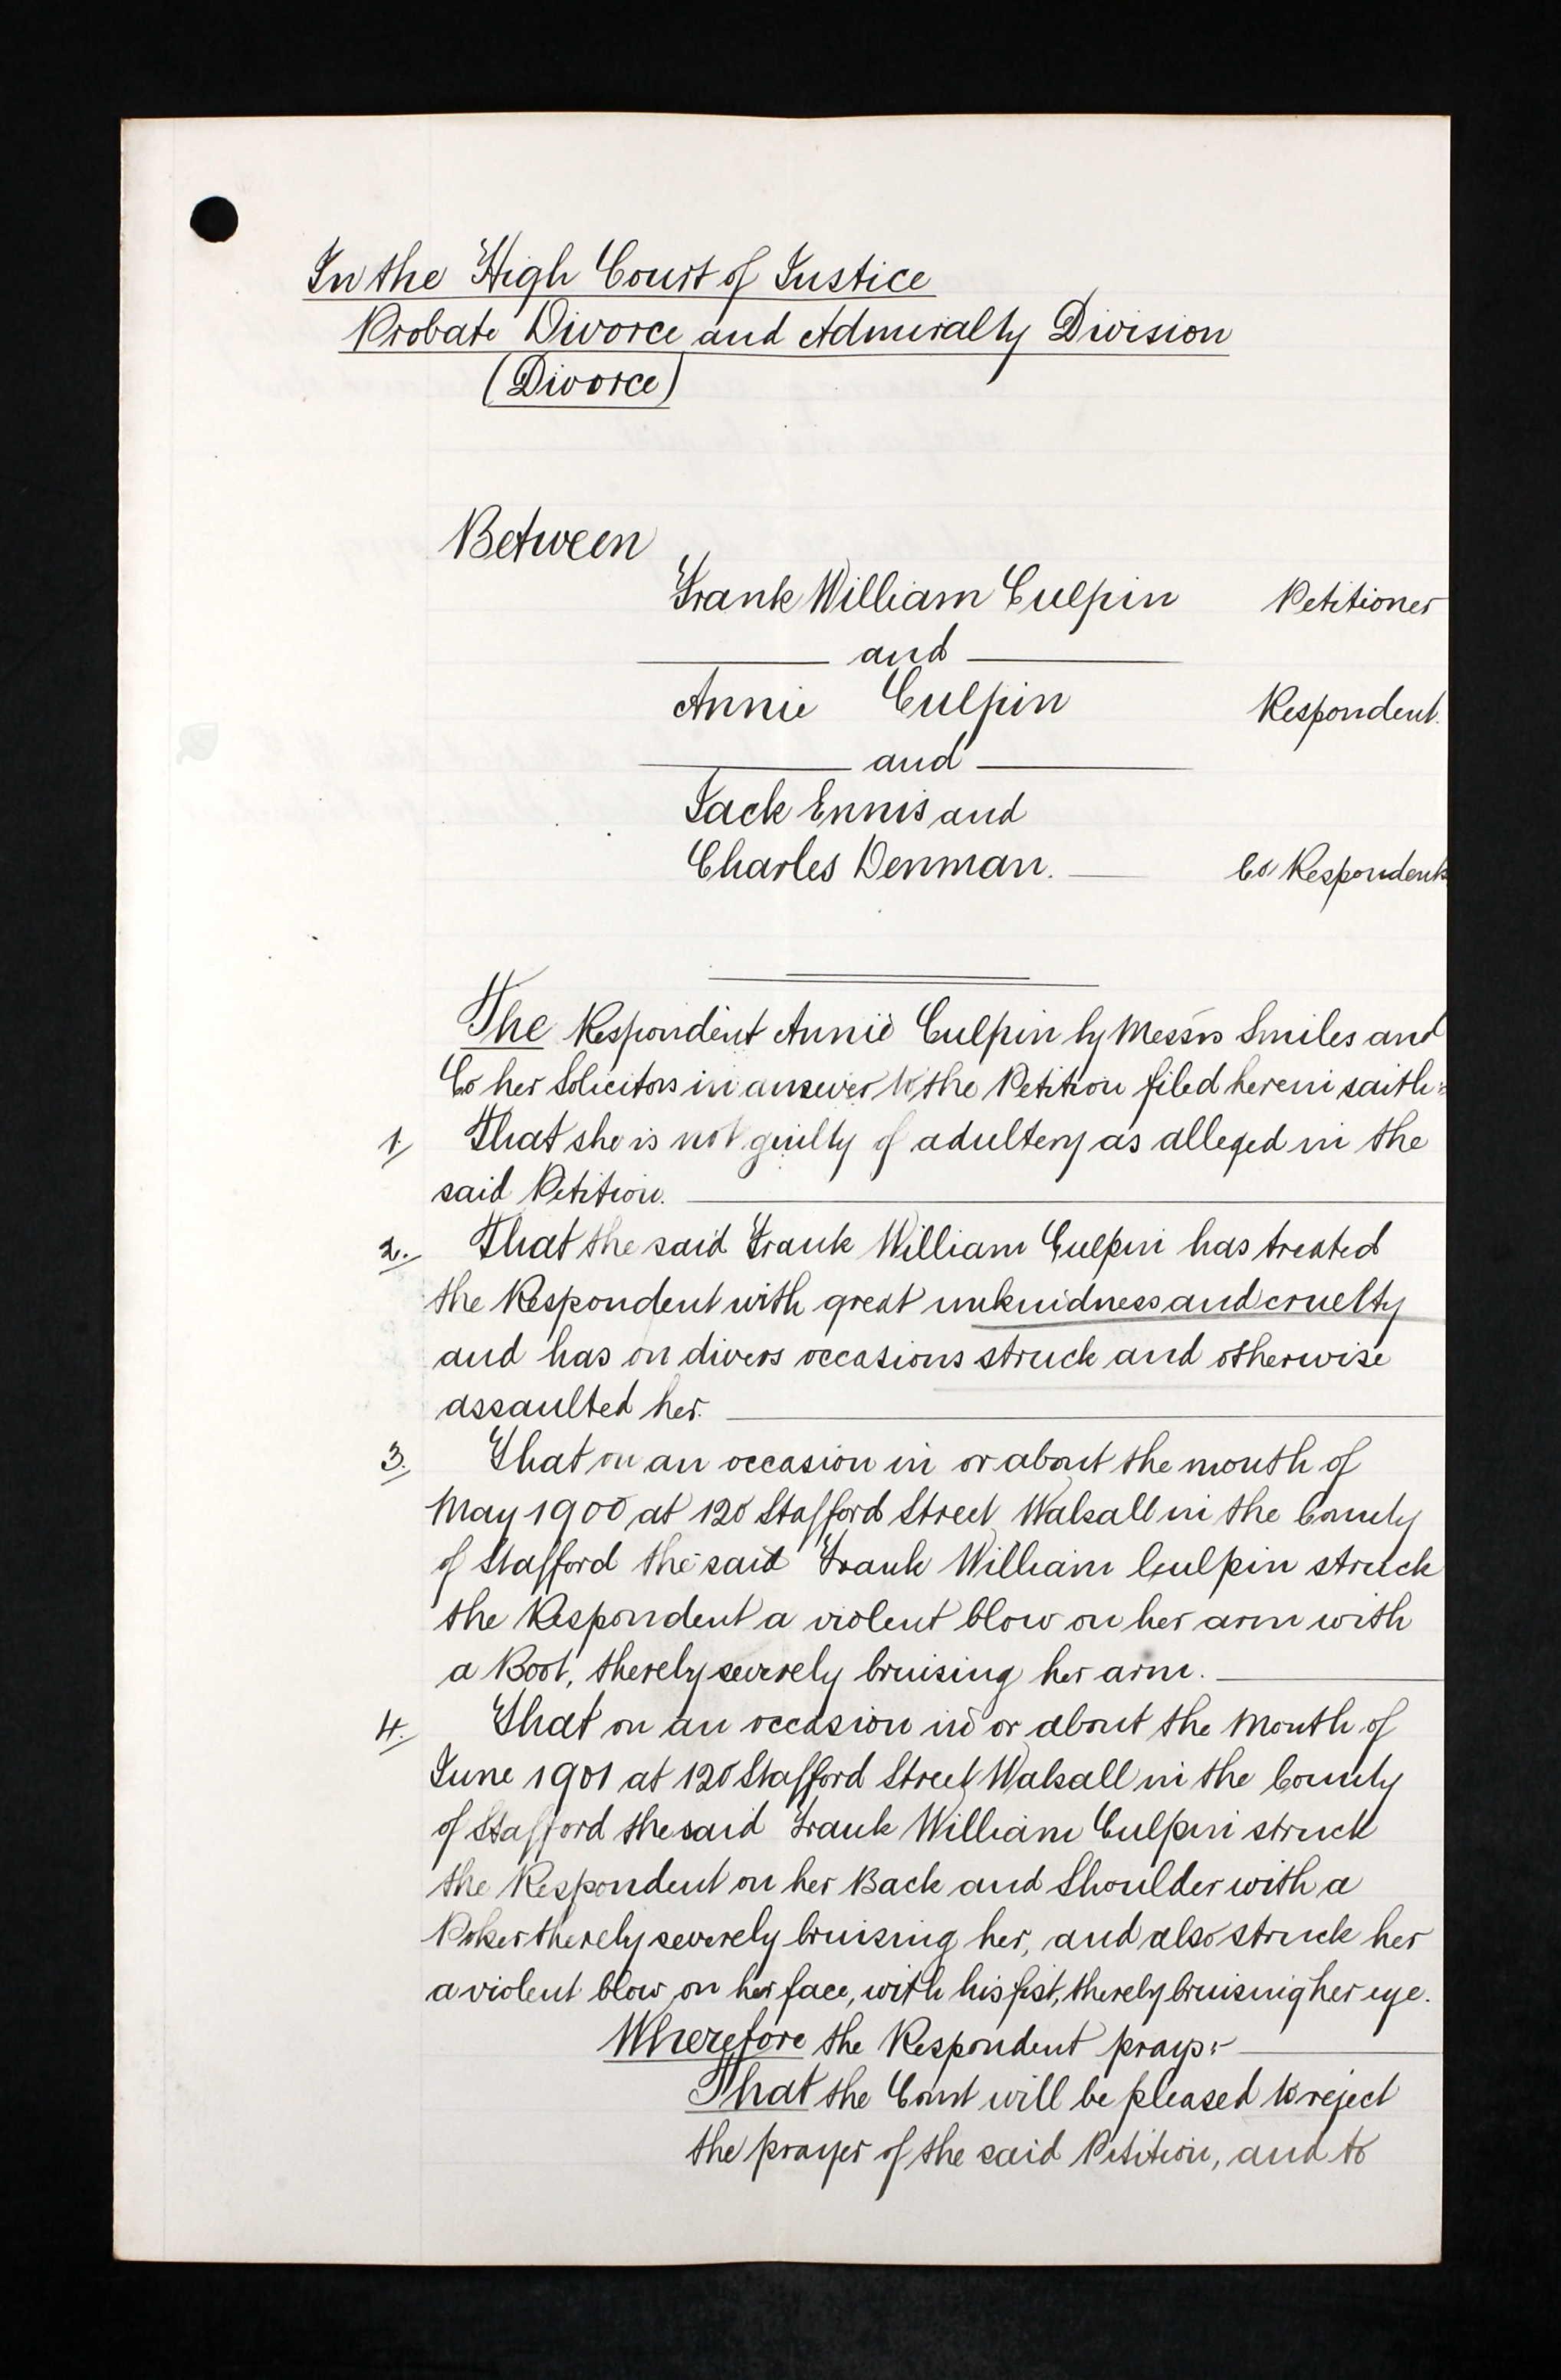 In the High Court of Justice
Probate Divorce and Admiralty Division
(Divorce)
Between
Frank William Culpin Petitioner
and
Annie Culpin Respondent.
and
Jack Ennis and
Charles Denman. Co Respondents
The Respondent Annie Culpin by Messrs Smiles and
Co her Solicitors in answer to the Petition filed herein saith:-
1. That she is not guilty of adultery as alleged in the
said Petition.
2. That the said Frank William Culpin has treated
the Respondent with great unkindness and cruelty
and has on divers occasions struck and otherwise
assaulted her.
3. That on an occasion in or about the month of
May 1900 at 120 Stafford Street Walsall in the County
of Stafford the said Frank William Culpin struck
the Respondent a violent blow on her arm with
a Boot, thereby severely bruising her arm.
4. That on an occasion in or about the Month of
June 1901 at 120 Stafford Street Walsall in the County
of Stafford the said Frank William Culpin struck
the Respondent on her Back and Shoulder with a
Poker thereby severely bruising her, and also struck her
a violent blow on her face, with his fist, thereby bruising her eye.
Wherefore the Respondent prays:-
That the Court will be pleased to reject
the prayer of the said Petition, and to